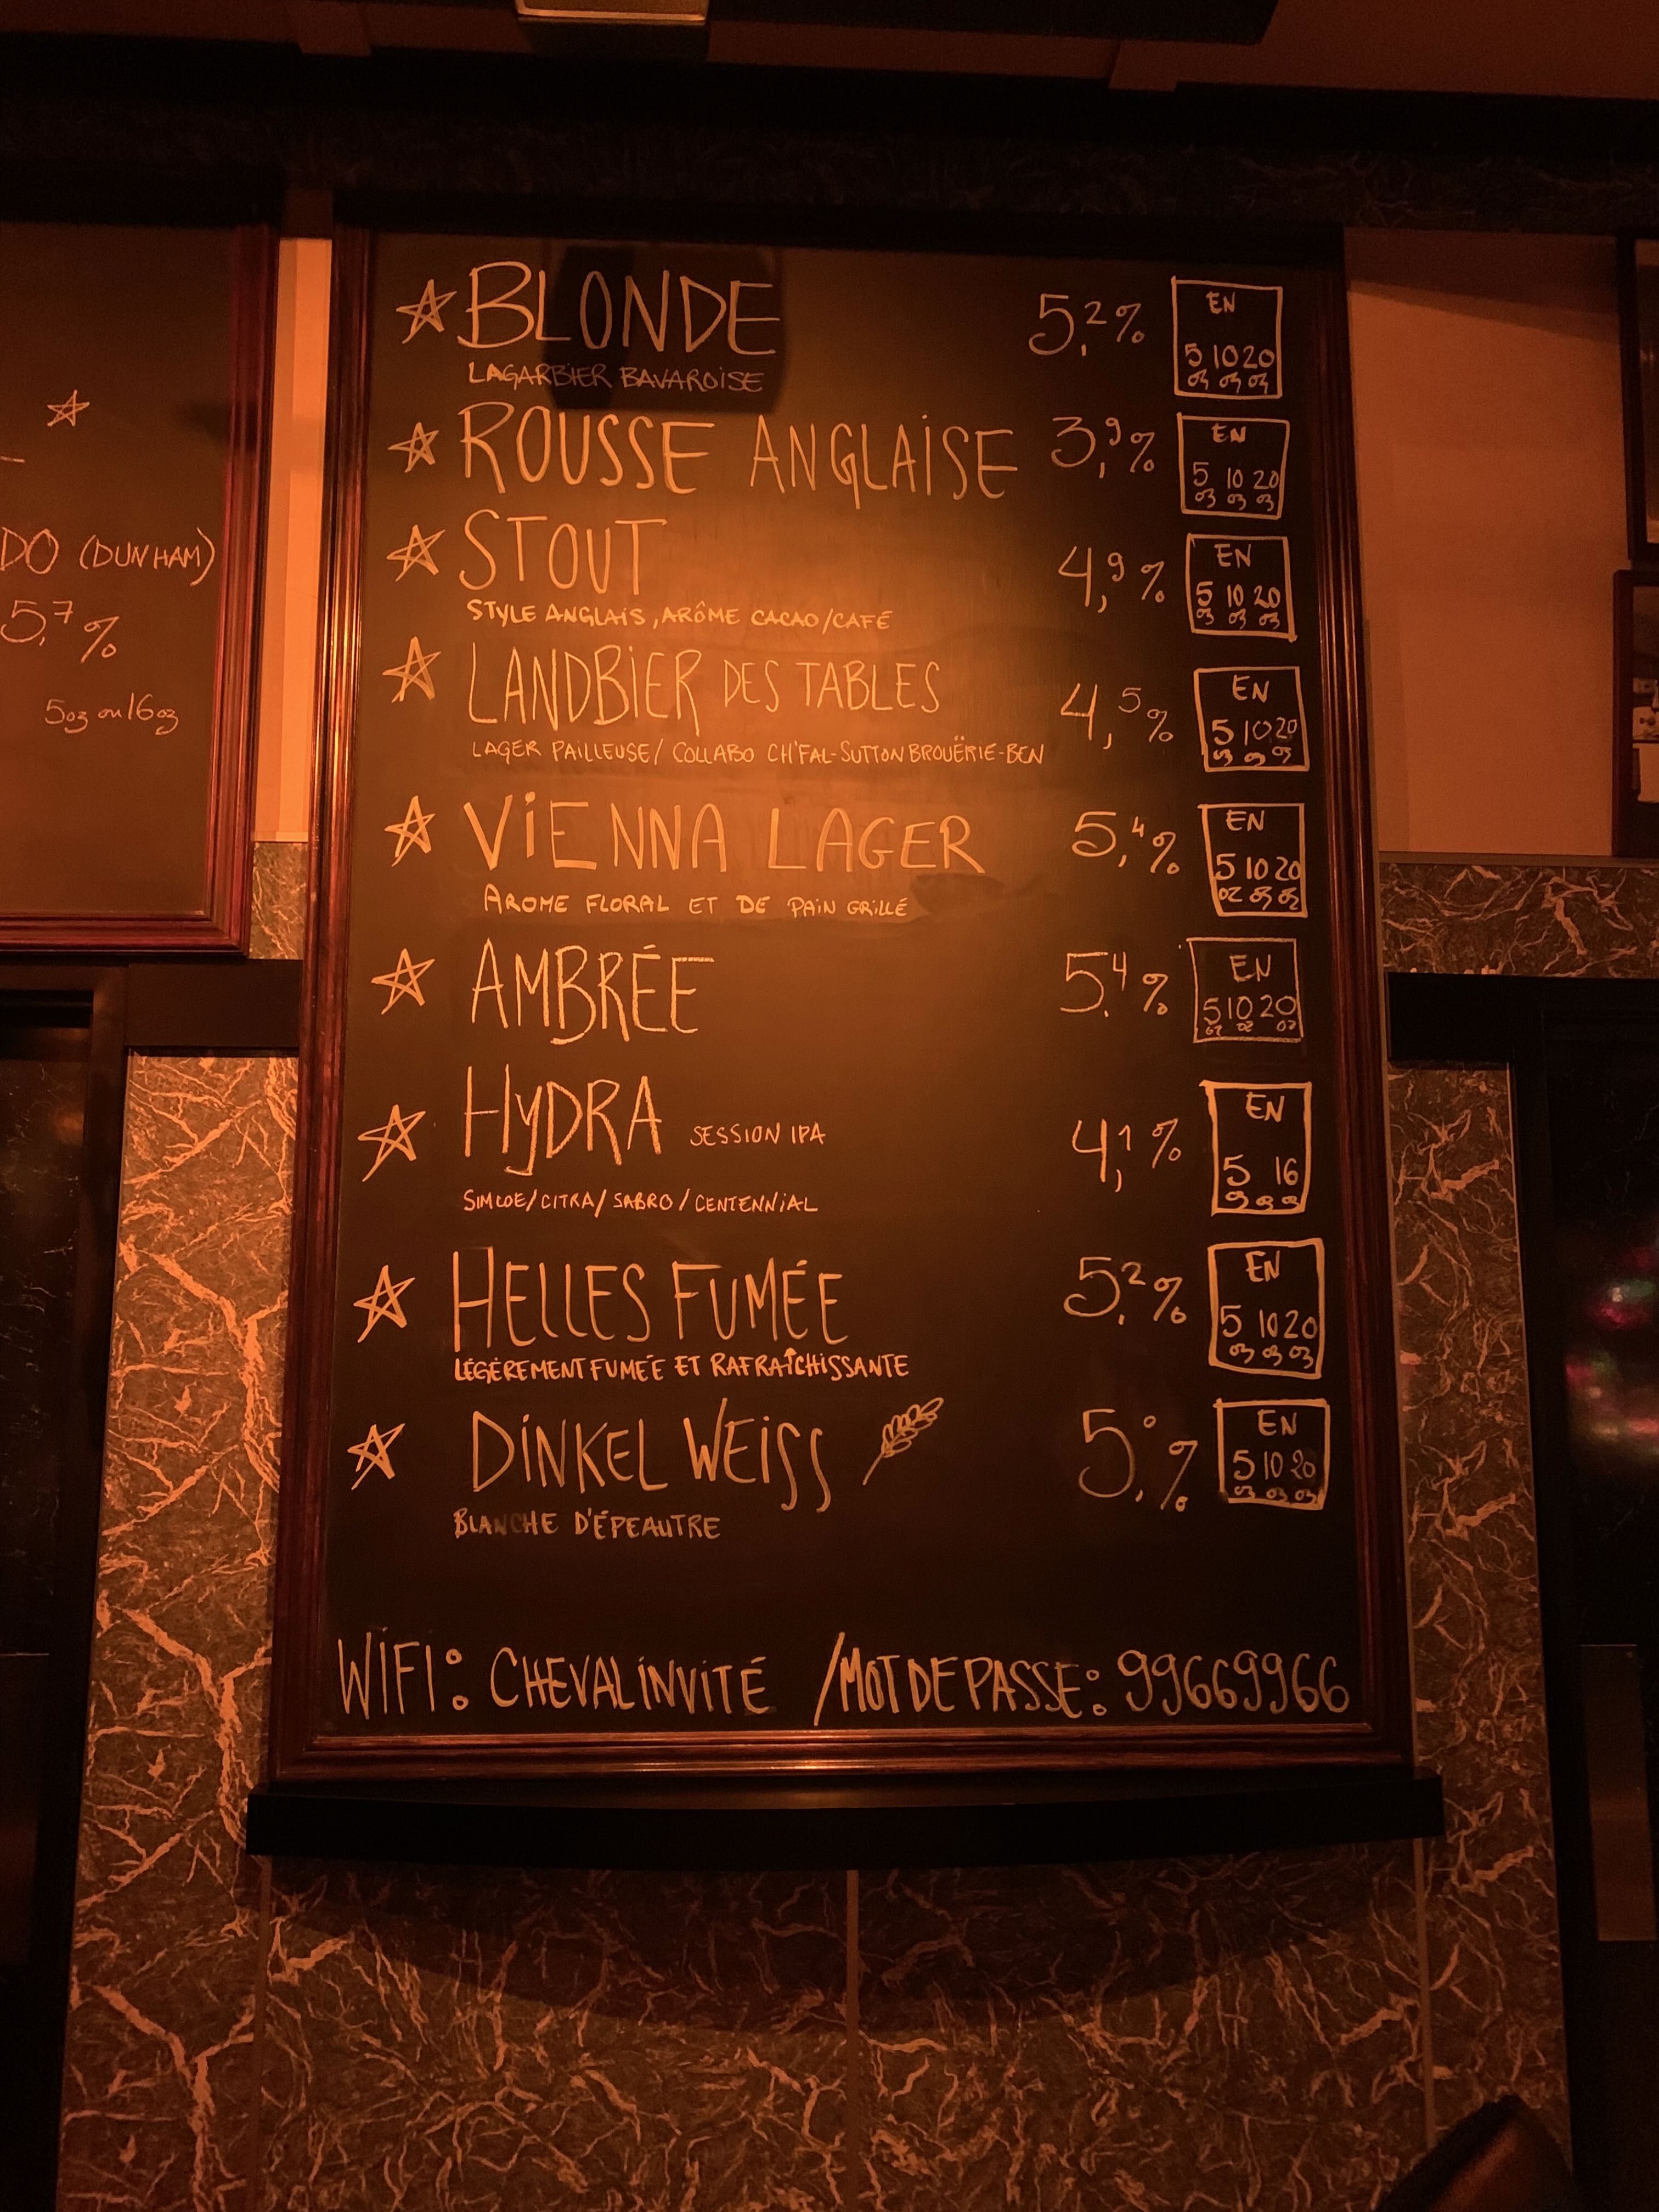 DO (DUNHAM)
5,7%
5oz ou 16oz
BLONDE 5,2% EN
5 10 20
oz oz oz
LAGARBIER BAVAROISE
ROUSSE ANGLAISE 3,9% EN
5 10 20
oz oz oz
STOUT 4,9% EN
5 10 20
oz oz oz
STYLE ANGLAIS, ARÔME CACAO/CAFÉ
LANDBIER DES TABLES 4,5% EN
5 10 20
oz oz oz
LAGER PAILLEUSE/ COLLABO CH'FAL-SUTTON BROUËRIE-BEN
VIENNA LAGER 5,4% EN
5 10 20
oz oz oz
AROME FLORAL ET DE PAIN GRILLÉ
AMBRÉE 5,4% EN
5 10 20
oz oz oz
HYDRA SESSION IPA 4,1% EN
5 16
SIMCOE/CITRA/SABRO/CENTENNIAL
HELLES FUMÉE 5,2% EN
5 10 20
oz oz oz
LÉGÈREMENT FUMÉE ET RAFRAÎCHISSANTE
DINKEL WEISS 5,0% EN
5 10 20
oz oz oz
BLANCHE D'ÉPEAUTRE
WIFI: CHEVALINVITÉ /MOT DE PASSE: 99669966